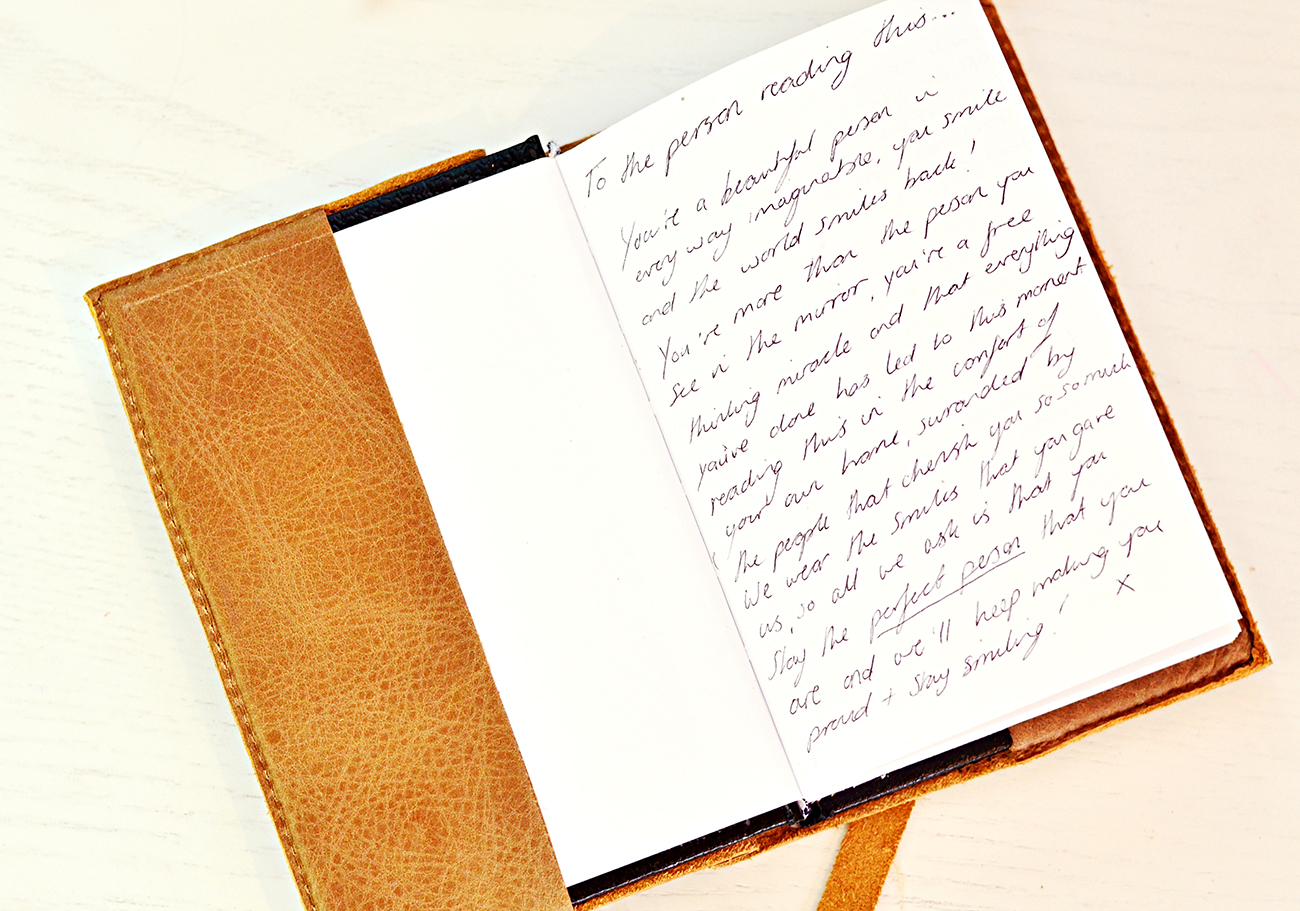 To the person reading this...
You're a beautiful person in
every way imaginable, you smile
and the world smiles back!
You're more than the person you
see in the mirror, you're a free
thinking miracle and that everything
you've done has led to this moment
reading this in the comfort of
your own home, surrounded by
the people that cherish you so so much
We wear the smiles that you gave
us, so all we ask is that you
stay the perfect person that you
are and we'll keep making you
proud + stay smiling! x